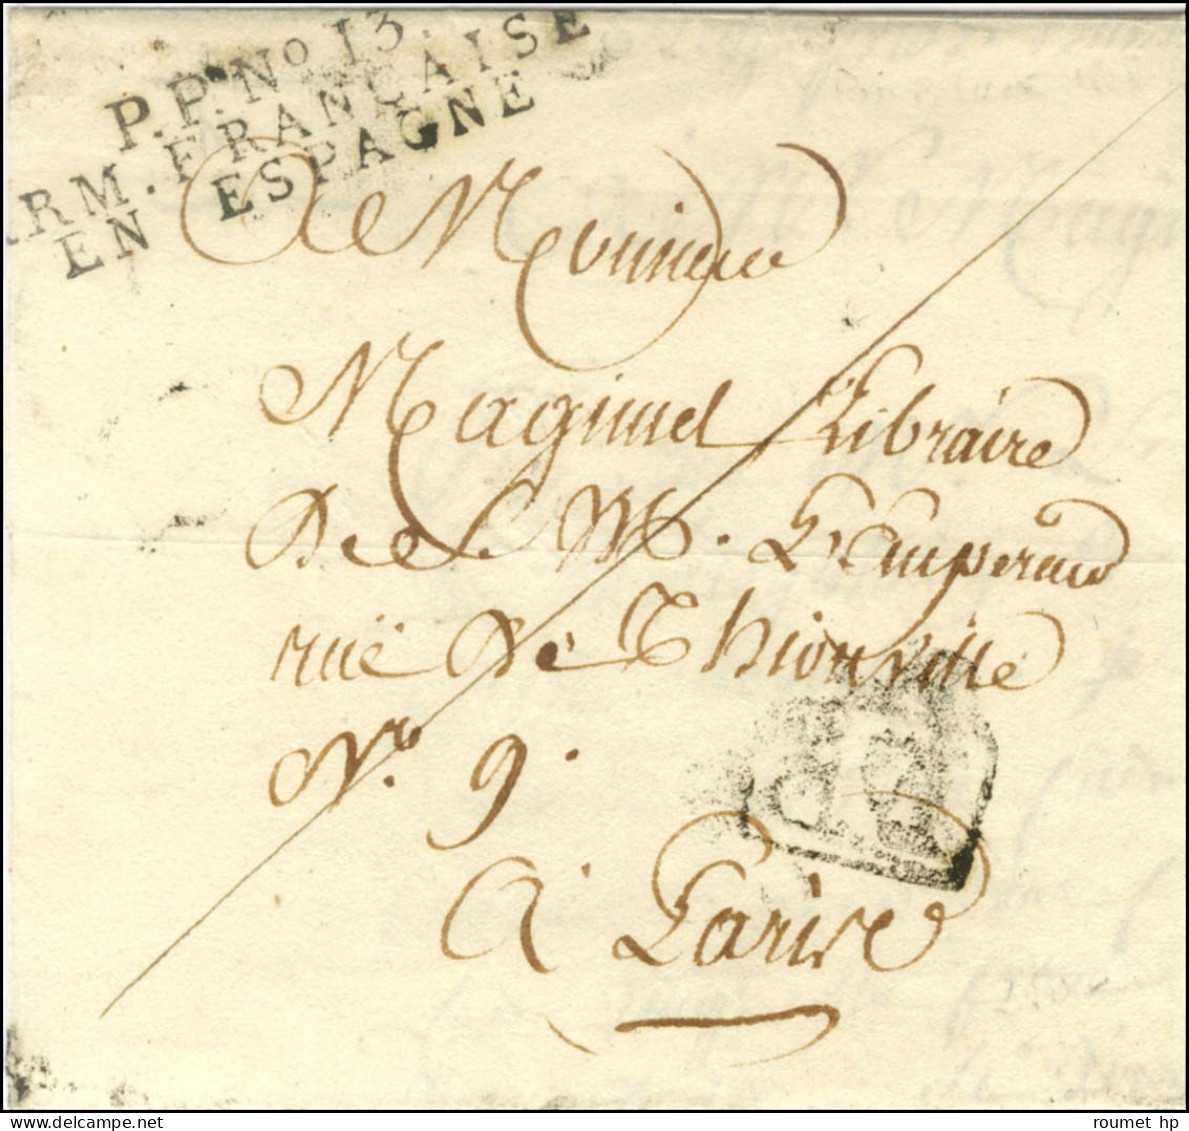 P.P.No 13.
ARM. FRANÇAISE
EN ESPAGNE
A Monsieur
Magimel Libraire
De S. M. L'Empereur
rue De Thionville
No. 9.
A Paris
P.P.
roumet hp